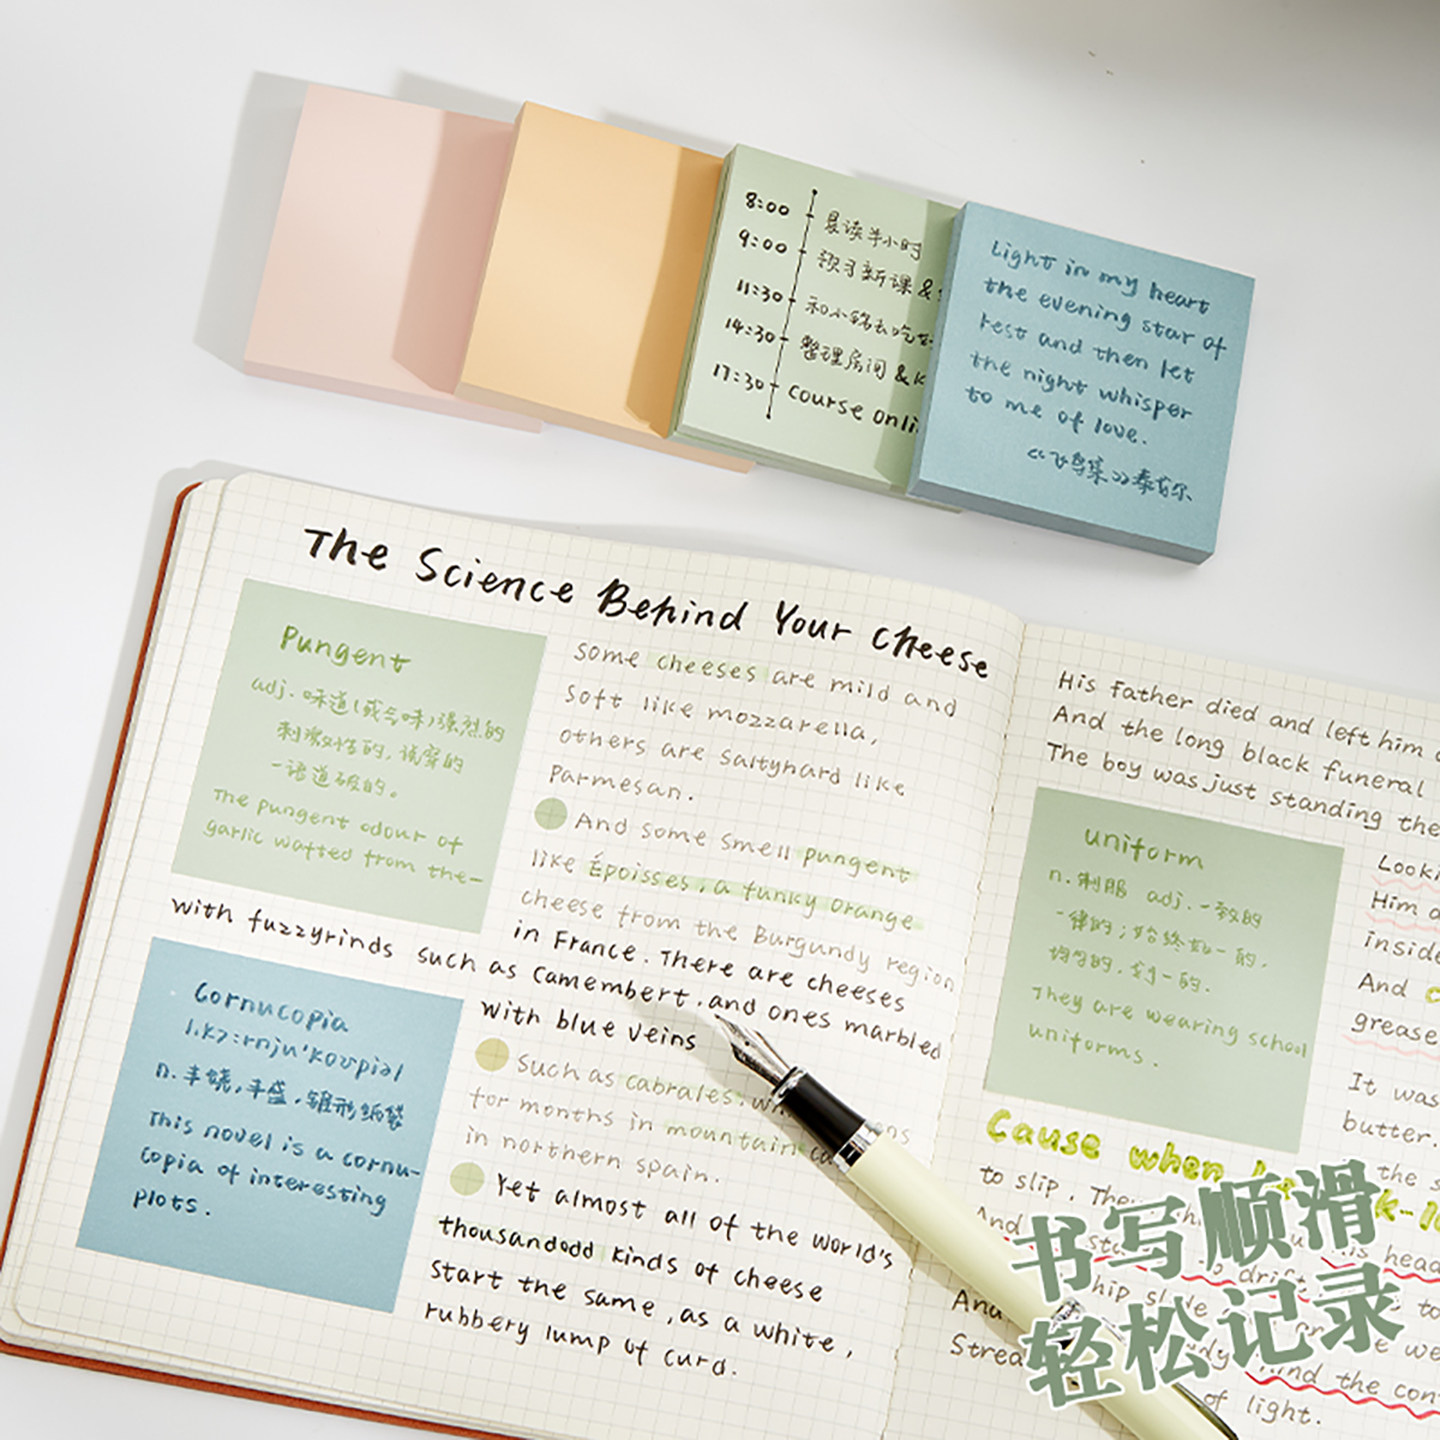 8:00 晨读半小时
9:00 预习新课 &
11:30 和小铭去吃
14:30 整理房间 & K
17:30 course onli
Light in my heart
the evening star of
rest and then let
the night whisper
to me of love.
《飞鸟集》泰戈尔
The Science Behind Your Cheese
Pungent
adj. 味道(或气味)强烈的
刺激性的, 说穿的
一语道破的。
The pungent odour of
garlic wafted from the-
some cheeses are mild and
soft like mozzarella,
others are saltyhard like
Parmesan.
And some smell pungent
like Époisses, a funky orange
cheese from the Burgundy region
in France. There are cheeses
with fuzzyrinds such as Camembert, and ones marbled
with blue veins
Cornucopia
n. 丰饶, 丰盛, 锥形纸袋
This novel is a cornu-
copia of interesting
plots.
Such as cabrales,
for months in mountain ca
in northern spain.
Yet almost all of the world's
thousandodd kinds of cheese
start the same, as a white,
rubbery lump of curd.
His father died and left him
And the long black funeral
The boy was just standing the
uniform
n. 制服 adj. 一致的
一律的; 始终如一的,
均匀的, 划一的.
They are wearing school
uniforms.
Looki
Him a
inside
And
grease
It was
butter.
Cause when
to slip. The
the s
And
head
drift
to
ship
And
we
Strea
and the con
of light.
书写顺滑
轻松记录